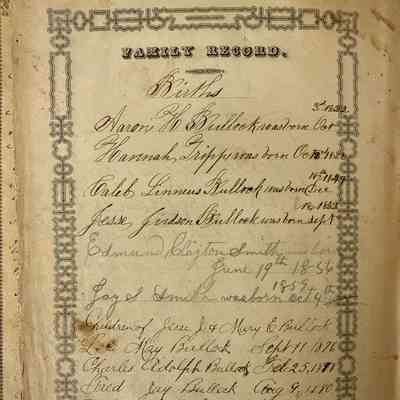 FAMILY RECORD.
Births
3d 1822
Aaron H Bullock was born Oct
Hannah Tripp was born Oct
10th 1849
Caleb Linneus Bullock was born Dec
1853
Jesse Judson Bullock was born Sept
Edmund Clayton Smith was born
June 19th 1856
1859
Jay S Smith was born Oct 4th
Children of Jesse J & Mary E Bullock
May Bullock Sept 11 1876
Charles Adolph Bullock Feb 25, 1878
Fred Jay Bullock Aug 9, 1880